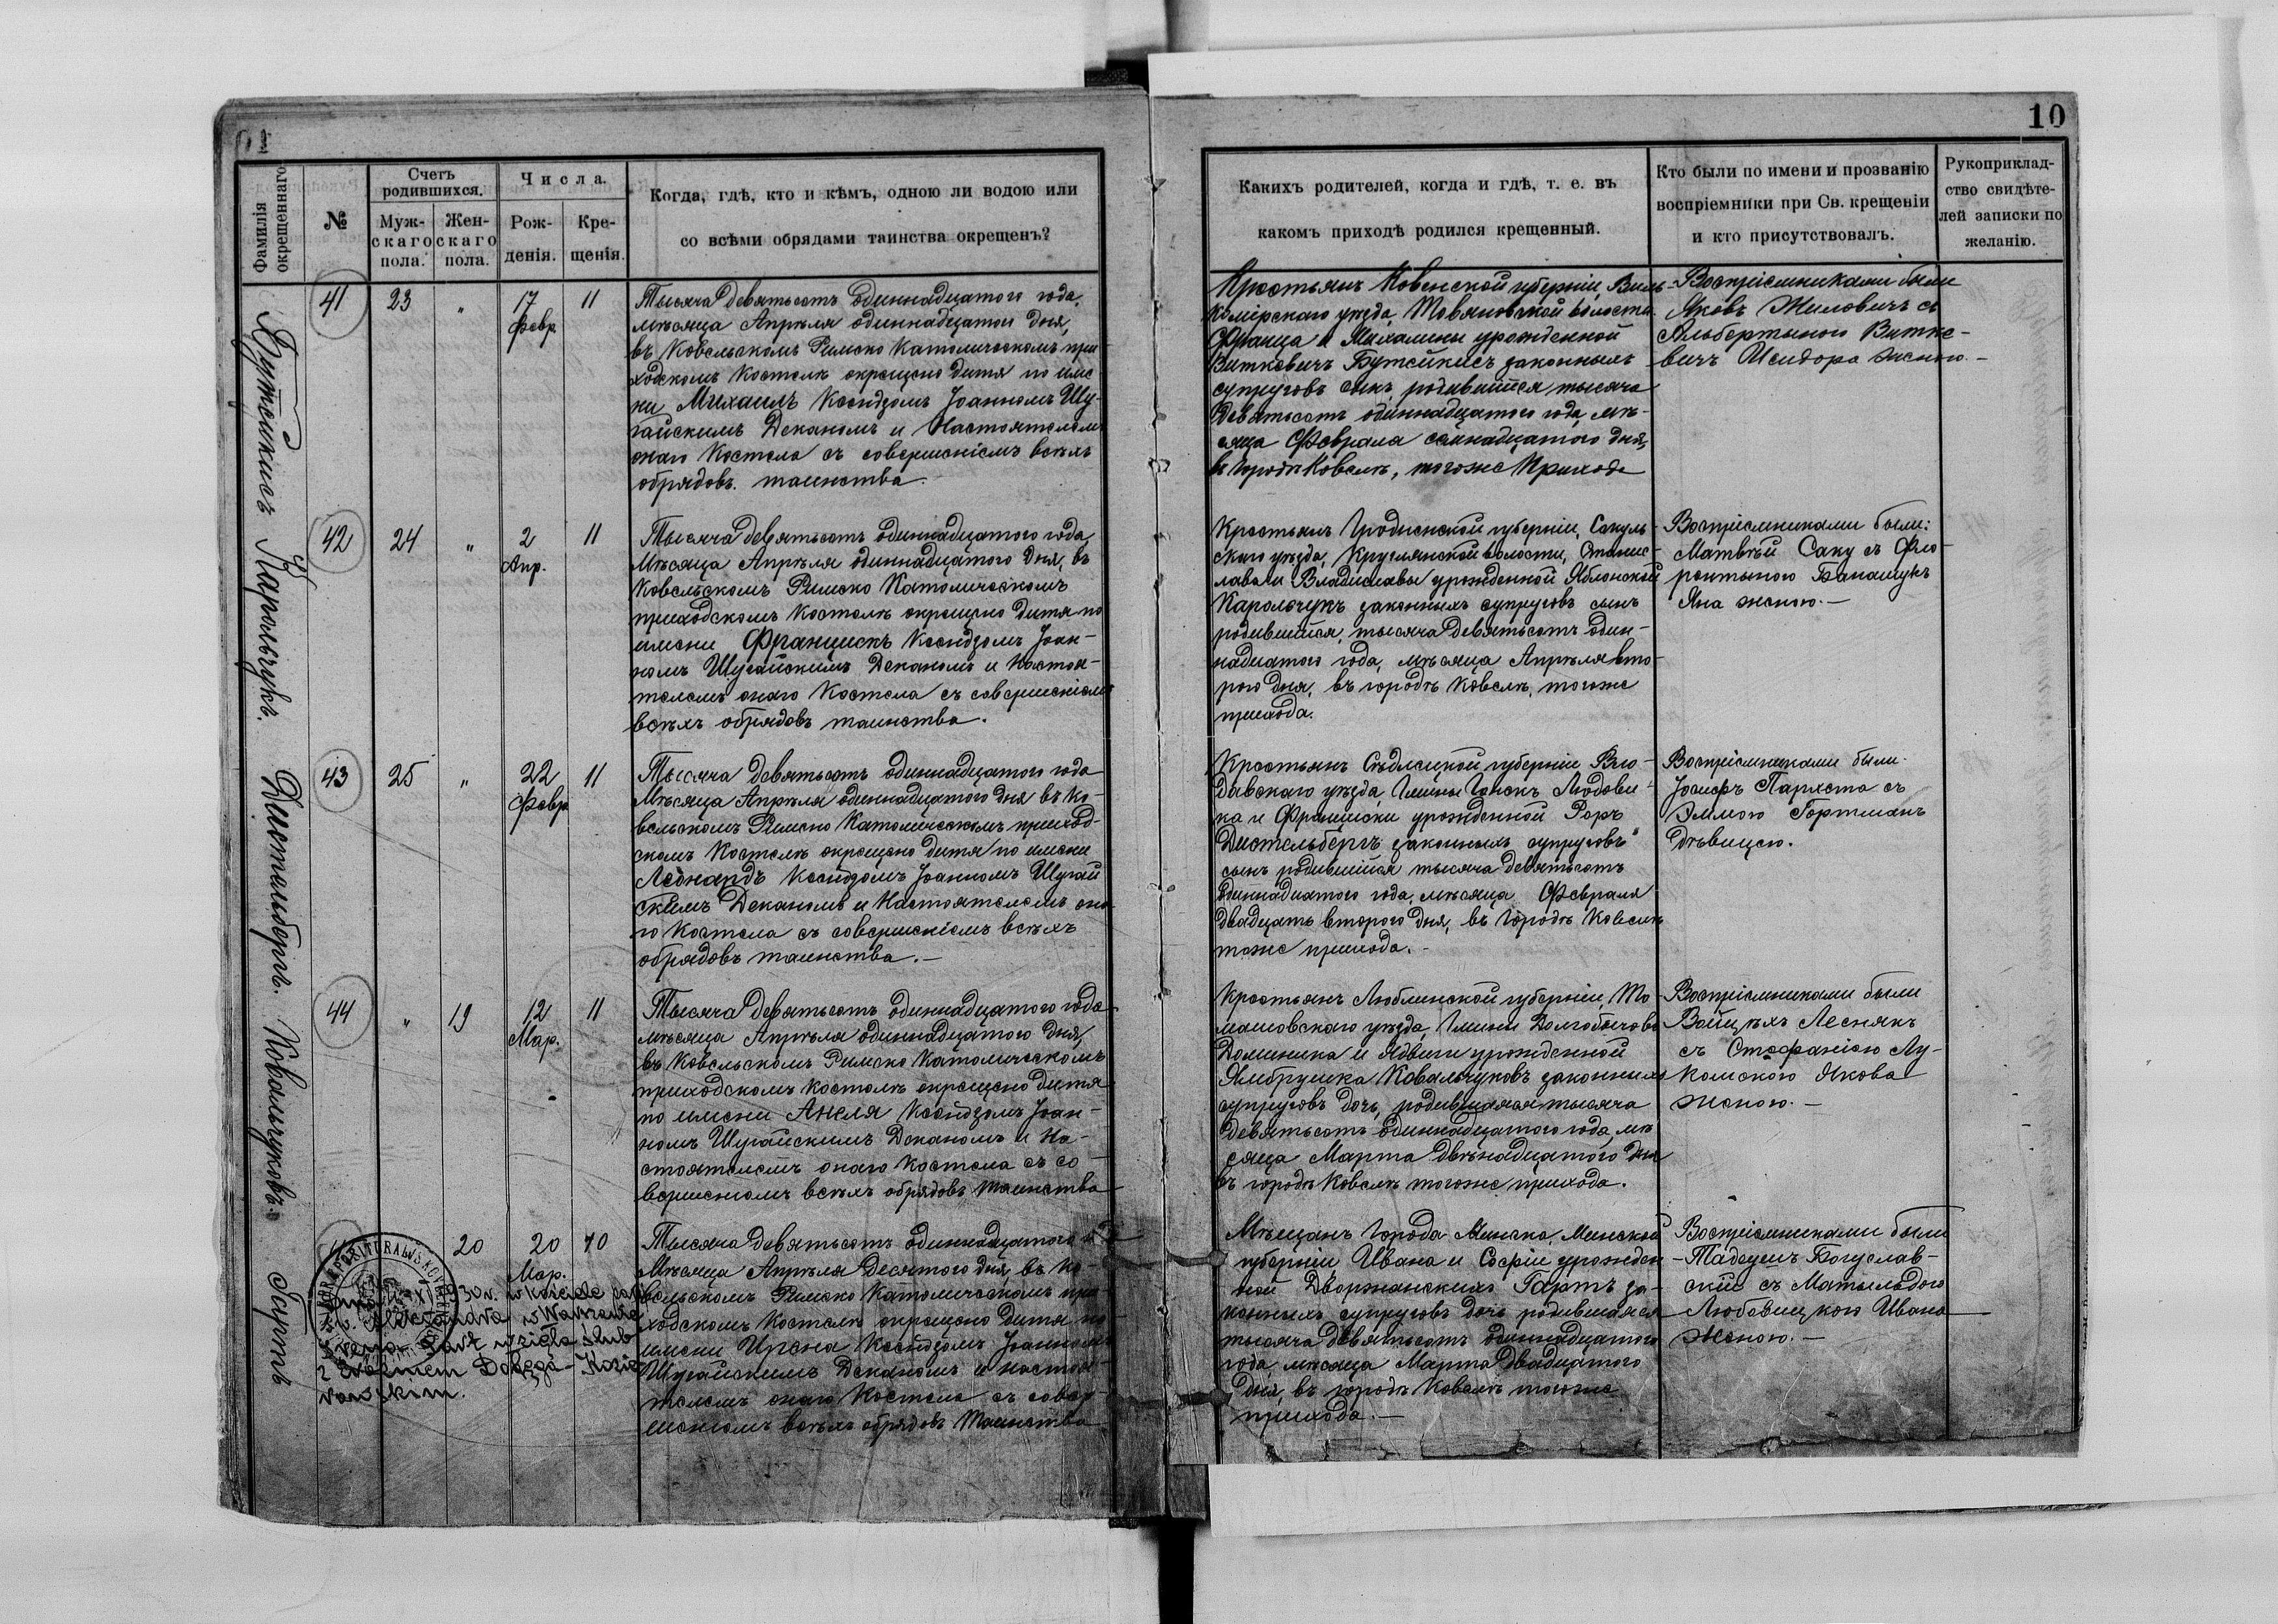 10
Фамилія окрещеннаго
№
Счетъ родившихся.
Муж-
скаго
пола.
Жен-
скаго
пола.
Числа.
Рож-
денія.
Кре-
щенія.
Когда, гдѣ, кто и кѣмъ, одною ли водою или
со всѣми обрядами таинства окрещенъ?
Какихъ родителей, когда и гдѣ, т. е. въ
какомъ приходѣ родился крещенный.
Кто были по имени и прозванію
воспріемники при Св. крещеніи
и кто присутствовалъ.
Рукоприклад-
ство свидѣте-
лей записки по
желанію.
Бутейкисъ
41 23 " 17 Февр 11
Тысяча девятьсотъ одиннадцатого года,
мѣсяца Апрѣля одиннадцатого дня,
въ Ковельскомъ Римско Католическомъ при-
ходскомъ Костелѣ окрещено дитя по име
ни Михаилъ Ксендзомъ Іоанномъ Шу-
гайскимъ Деканомъ и Настоятелемъ
онаго Костела съ совершеніемъ всѣхъ
обрядовъ таинства.
Крестьянъ Ковенской губерніи, Виль-
комірскаго уѣзда, Товянской волости
Франца и Михалины урожденной
Виткевичъ Бутейкисъ законныхъ
супруговъ сынъ, родившійся тысяча
девятьсотъ одиннадцатого года, мѣ-
сяца Февраля семнадцатого дня,
въ городѣ Ковелѣ, тогоже Прихода
Воспріемниками были
Яковъ Жиловичъ съ
Альбертыною Витке-
вичъ Исидора женою.-
Карольчукъ.
42 24 " 2 Апр. 11
Тысяча девятьсотъ одиннадцатого года,
Мѣсяца Апрѣля одиннадцатого дня, въ
Ковельскомъ Римско Католическомъ
приходскомъ Костелѣ окрещено дитя по
имени Францискъ Ксендзомъ Іоан-
номъ Шугайскимъ Деканомъ и Настоя-
телемъ онаго Костела съ совершеніемъ
всѣхъ обрядовъ таинства.
Крестьянъ Гродненской губерніи, Соколь-
скаго уѣзда, Круглянской волости, Станис-
лава и Владиславы урожденной Яблонской
Карольчукъ законныхъ супруговъ сынъ
родившійся, тысяча девятьсотъ один-
надцатого года, мѣсяца Апрѣля вто-
рого дня, въ городѣ Ковелѣ, тогоже
прихода.
Воспріемниками были:
Матвѣй Саку съ Фло-
рентыною Банашукъ
Яна женою.-
Дистельбергъ.
43 25 " 22 Февр 11
Тысяча девятьсотъ одиннадцатого года
Мѣсяца Апрѣля одиннадцатого дня въ Ко-
вельскомъ Римско Католическомъ приход-
скомъ Костелѣ окрещено дитя по имени
Леонардъ Ксендзомъ Іоанномъ Шугай
скимъ Деканомъ и Настоятелемъ она
го Костела съ совершеніемъ всѣхъ
обрядовъ таинства.-
Крестьянъ Сѣдлецкой губерніи Вло-
давскаго уѣзда, Гмины Ганскъ Людови-
ка и Францишки урожденной Роръ
Дистельбергъ законныхъ супруговъ
сынъ родившійся тысяча девятьсотъ
одиннадцатого года, мѣсяца Февраля
двадцать второго дня, въ городѣ Ковелѣ
тоже прихода.-
Воспріемниками были.
Іосифъ Пархета съ
Эммою Гортманъ
дѣвицею.
Ковальчуковъ.
44 " 19 12 Мар. 11
Тысяча девятьсотъ одиннадцатого года
мѣсяца Апрѣля одиннадцатого дня,
въ Ковельскомъ Римско Католическомъ
приходскомъ Костелѣ окрещено дитя
по имени Анеля Ксендзомъ Іоан-
номъ Шугайскимъ Деканомъ и На-
стоятелемъ онаго Костела съ со-
вершеніемъ всѣхъ обрядовъ таинства
Крестьянъ Люблинской губерніи, То-
машовскаго уѣзда, Гмины Долгобычовъ
Доминика и Ядвиги урожденной
Ямбрушка Ковальчуковъ законныхъ
супруговъ дочь, родившаяся тысяча
девятьсотъ одиннадцатого года, мѣ
сяца Марта двѣнадцатого дня
въ городѣ Ковелѣ тогоже прихода.
Воспріемниками были
Войцѣхъ Леснякъ
съ Стефаніею Лу-
комскою Якова
женою.-
20 20 Мар. 10
Тысяча девятьсотъ одиннадцатого
Мѣсяца Апрѣля десятого дня, въ Ко-
вельскомъ Римско Католическомъ при-
ходскомъ Костелѣ окрещено дитя по
имени Ирена Ксендзомъ Іоанномъ
Шугайскимъ Деканомъ и Настоя-
телемъ онаго Костела съ совер-
шеніемъ всѣхъ обрядовъ таинства
Мѣщанъ города Минска, Минской
губерніи, Ивана и Софіи урожден
ной Дворжанскихъ Гартъ за-
конныхъ супруговъ дочь родившаяся
тысяча девятьсотъ одиннадцатого
года, мѣсяца Марта двадцатого
дня, въ городѣ Ковелѣ тогоже
прихода.-
Воспріемниками были
Тадеушъ Богуслав-
скій съ Матильдою
Любовицкою Ивана
женою.-
1930 r. w kościele par.
św. Aleksandra w Warszawie
Irena Gart wzięła ślub
z